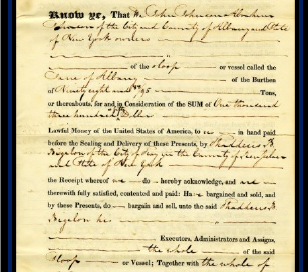 Know ye, That We John Johnson Abraham
Johnson of the City and County of Albany and State
of New York owners
of the sloop or vessel called the
Jane of Albany of the Burthen
of Ninety eight and 95 Tons,
or thereabouts, for and in Consideration of the SUM of One thousand
three hundred fifty Dollars
Lawful Money of the United States of America, to us in hand paid
before the Sealing and Delivery of these Presents, by Thaddeus B
Bigelow of the City of Troy in the County of Rensselaer
and State of New York
the Receipt whereof we do hereby acknowledge, and are
therewith fully satisfied, contented and paid: Have bargained and sold, and
by these Presents, do bargain and sell, unto the said Thaddeus B
Bigelow his
Executors, Administrators and Assigns,
the whole of the said
Sloop or Vessel; Together with the whole of